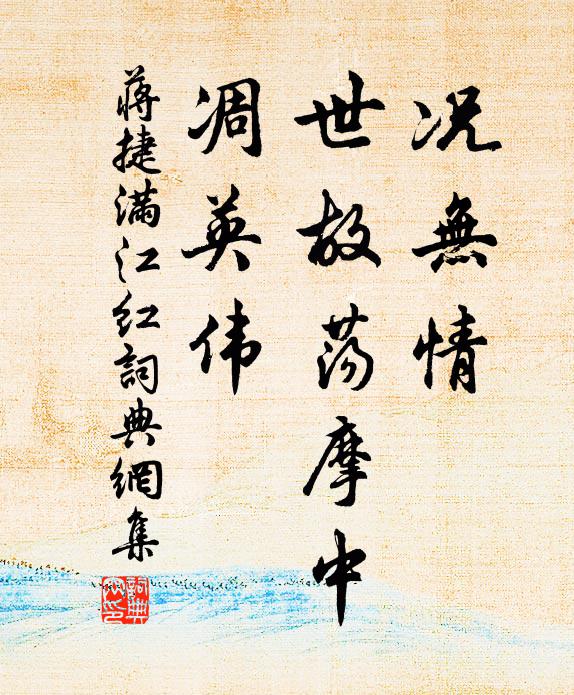 况無情
世故荡摩中
凋英伟
蒋捷满江红詞典網集
詞典